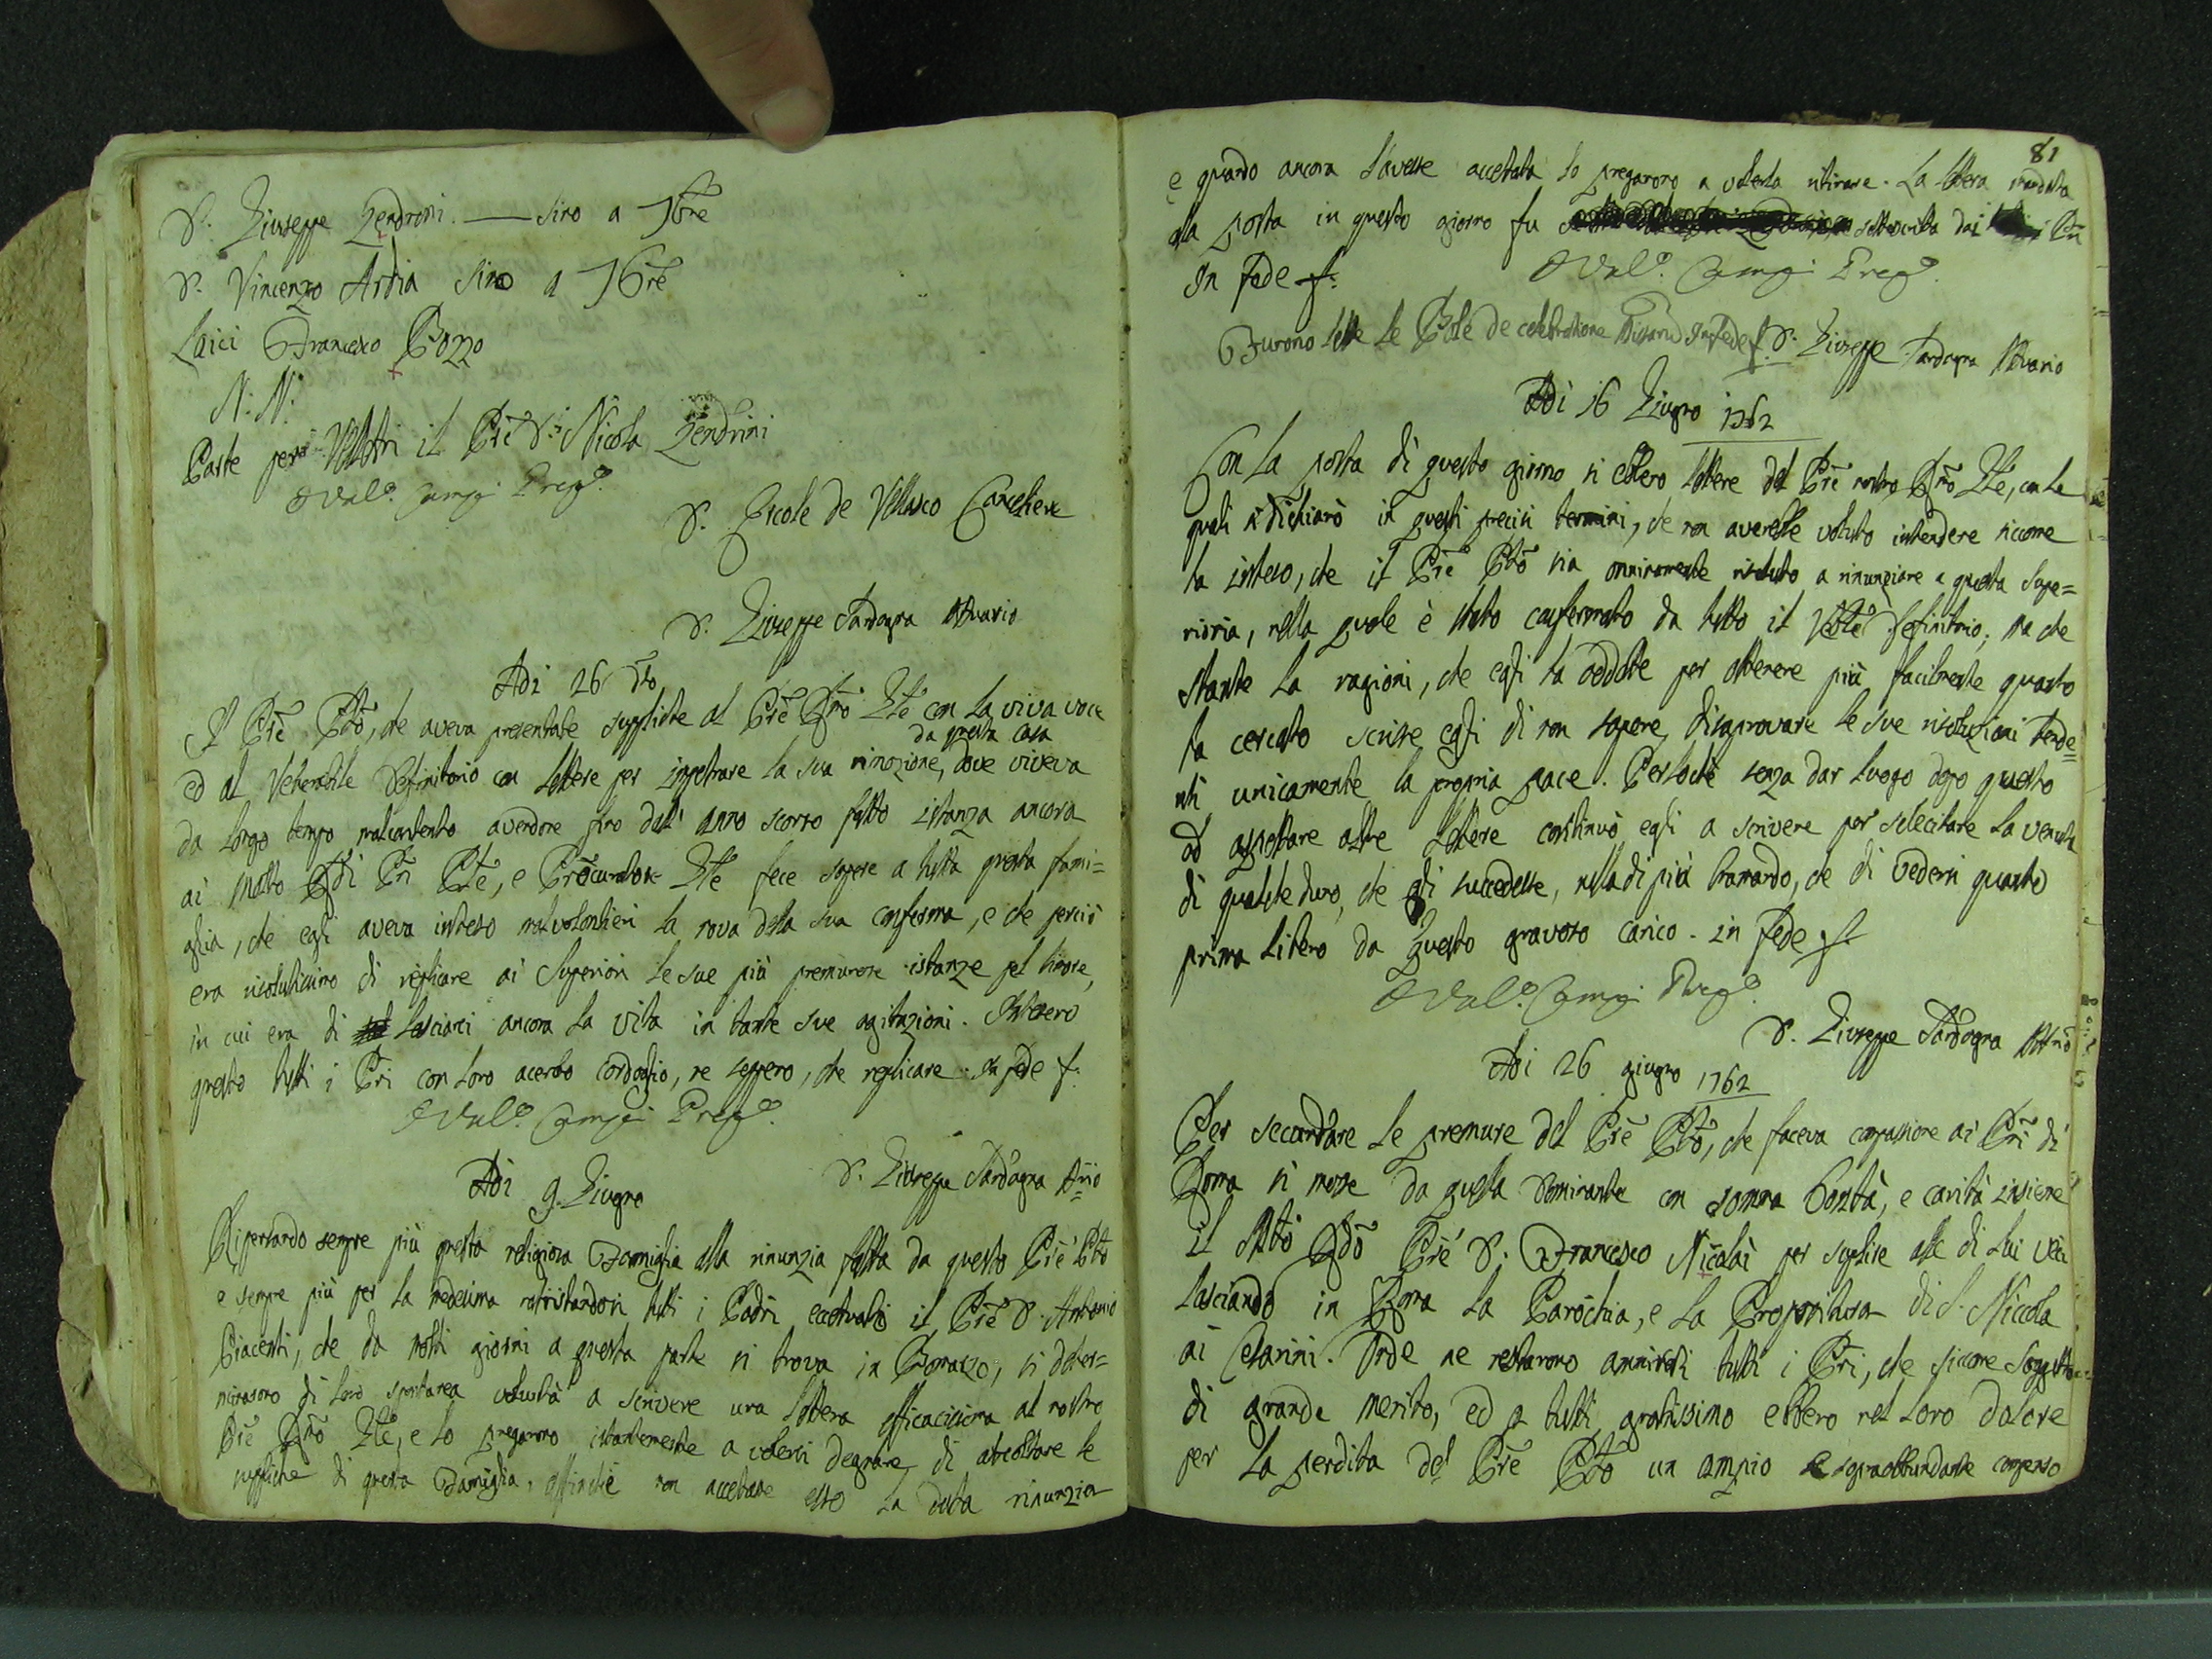 D. Giuseppe Gendroni. — sino a 7bre
D. Vincenzo Ardia sino a 7bre
Laici Francesco Bozzo
N: N:
Parte per Velletri il Pre D. Nicola Zendrini
D Val.o Campi Prep.o
D. Ercole de Vellasco Cancelliere
D. Giuseppe Sardagna Attuario
Adi 26 dto
Il Pre Pto, che aveva presentate suppliche al Pre Rmo Gle con la viva voce
da questa casa
ed al Venerabile Definitorio con lettere per impetrare la sua rimozione, dove viveva
da longo tempo malcontento avendone fino dall' anno scorso fatto istanza ancora
ai Molto Rdi Pri Pñte, e Procuratore Gle fece sapere a tutta questa fami=
glia, che egli aveva inteso malvolontieri la nova della sua conferma, e che perciò
era risolutissimo di replicare ai Superiori le sue più premurose istanze pel timore,
in cui era di lasciarci ancora la vita in tante sue agitazioni. Intesero
questo tutti i Pri con loro acerbo cordoglio, ne seppero, che replicare. In fede f.
D Val.o Campi Prep.o
D. Giuseppe Sardagna Attrio
Adi 9. Giugno
Ripensando sempre più questa religiosa Famiglia alla rinunzia fatta da questo Pre Pto
e sempre più per la medesima rattristandosi tutti i Padri eccettuato il Pre D. Antonio
Piacenti, che da molti giorni a questa parte si trova in Bomarzo, si deter=
minarono di loro spontanea volontà a scrivere una lettera efficacissima al nostro
Pre Rmo Gle, e lo pregarono istantemente a volersi degnare di ascoltare le
suppliche di questa Famiglia, affinchè non accettasse esso la data rinunzia
81
e quando ancora l'avesse accettata lo pregarono a volerla ritirare. La lettera mandata
alla posta in questo giorno fu sottoscritta dai Pri
In fede f.
D Val.o Campi Prep.o
Furono lette le Bole de celebratione Missarum In fede f. D. Giuseppe Sardagna Attuario
Adi 16 Giugno 1762
Con la posta di questo giorno si ebbero lettere del Pre nostro Rmo Gle, con le
quali si dichiarò in questi precisi termini, che non averebbe voluto intendere siccome
ha inteso, che il Pre Pto sia onninamente risoluto a rinunziare a questa Supe=
rioria, nella quale è stato confermato da tutto il Vble Definitorio; ma che
stante la ragioni, che egli ha addotte per ottenere più facilmente quanto
ha cercato scrisse egli di non sapere disaprovare le sue risoluzioni tende=
nti unicamente la propria pace. Perlochè senza dar luogo dopo questo
ad aspettare altre lettere continuò egli a scrivere per solecitare la venuta
di qualcheduno, che gli succedesse, nulla di più bramando, che di vedersi quanto
prima libero da questo gravoso carico. in fede f.
D Val.o Campi Prep.o
D. Giuseppe Sardagna Attrio
Adi 26 giugno 1762
Per secondare le premure del Pre Pto, che faceva compassione ai Pri di
Roma si mosse da questa Dominante con somma bontà, e carità insieme
il Mto Rdo Pre D. Francesco Nicolai per suplire alle di lui veci
lasciando in Roma la Parochia, e la Propositura di S. Niccola
ai Cesarini. Onde ne restarono ammirati tutti i Pri, che siccome Soggetto
di grande merito, ed a tutti gratissimo ebbero nel loro dolore
per la perdita del Pre Pto un ampio e sopraabbundante compenso